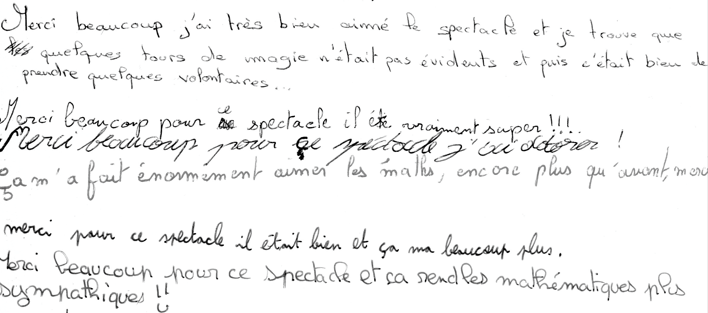 Merci beaucoup j'ai très bien aimé le spectacle et je trouve que
quelques tours de magie n'était pas évidents et puis c'était bien de
prendre quelques volontaires...
Merci beaucoup pour le spectacle il été vraiment super !!!..
Merci beaucoup pour ce spectacle j'ai adorer !
Ça m'a fait énormement aimer les maths, encore plus qu'avant, merci
merci pour ce spectacle il était bien et ça ma beaucoup plus.
Merci beaucoup pour ce spectacle et ca rend les mathématiques plus
sympathiques !!